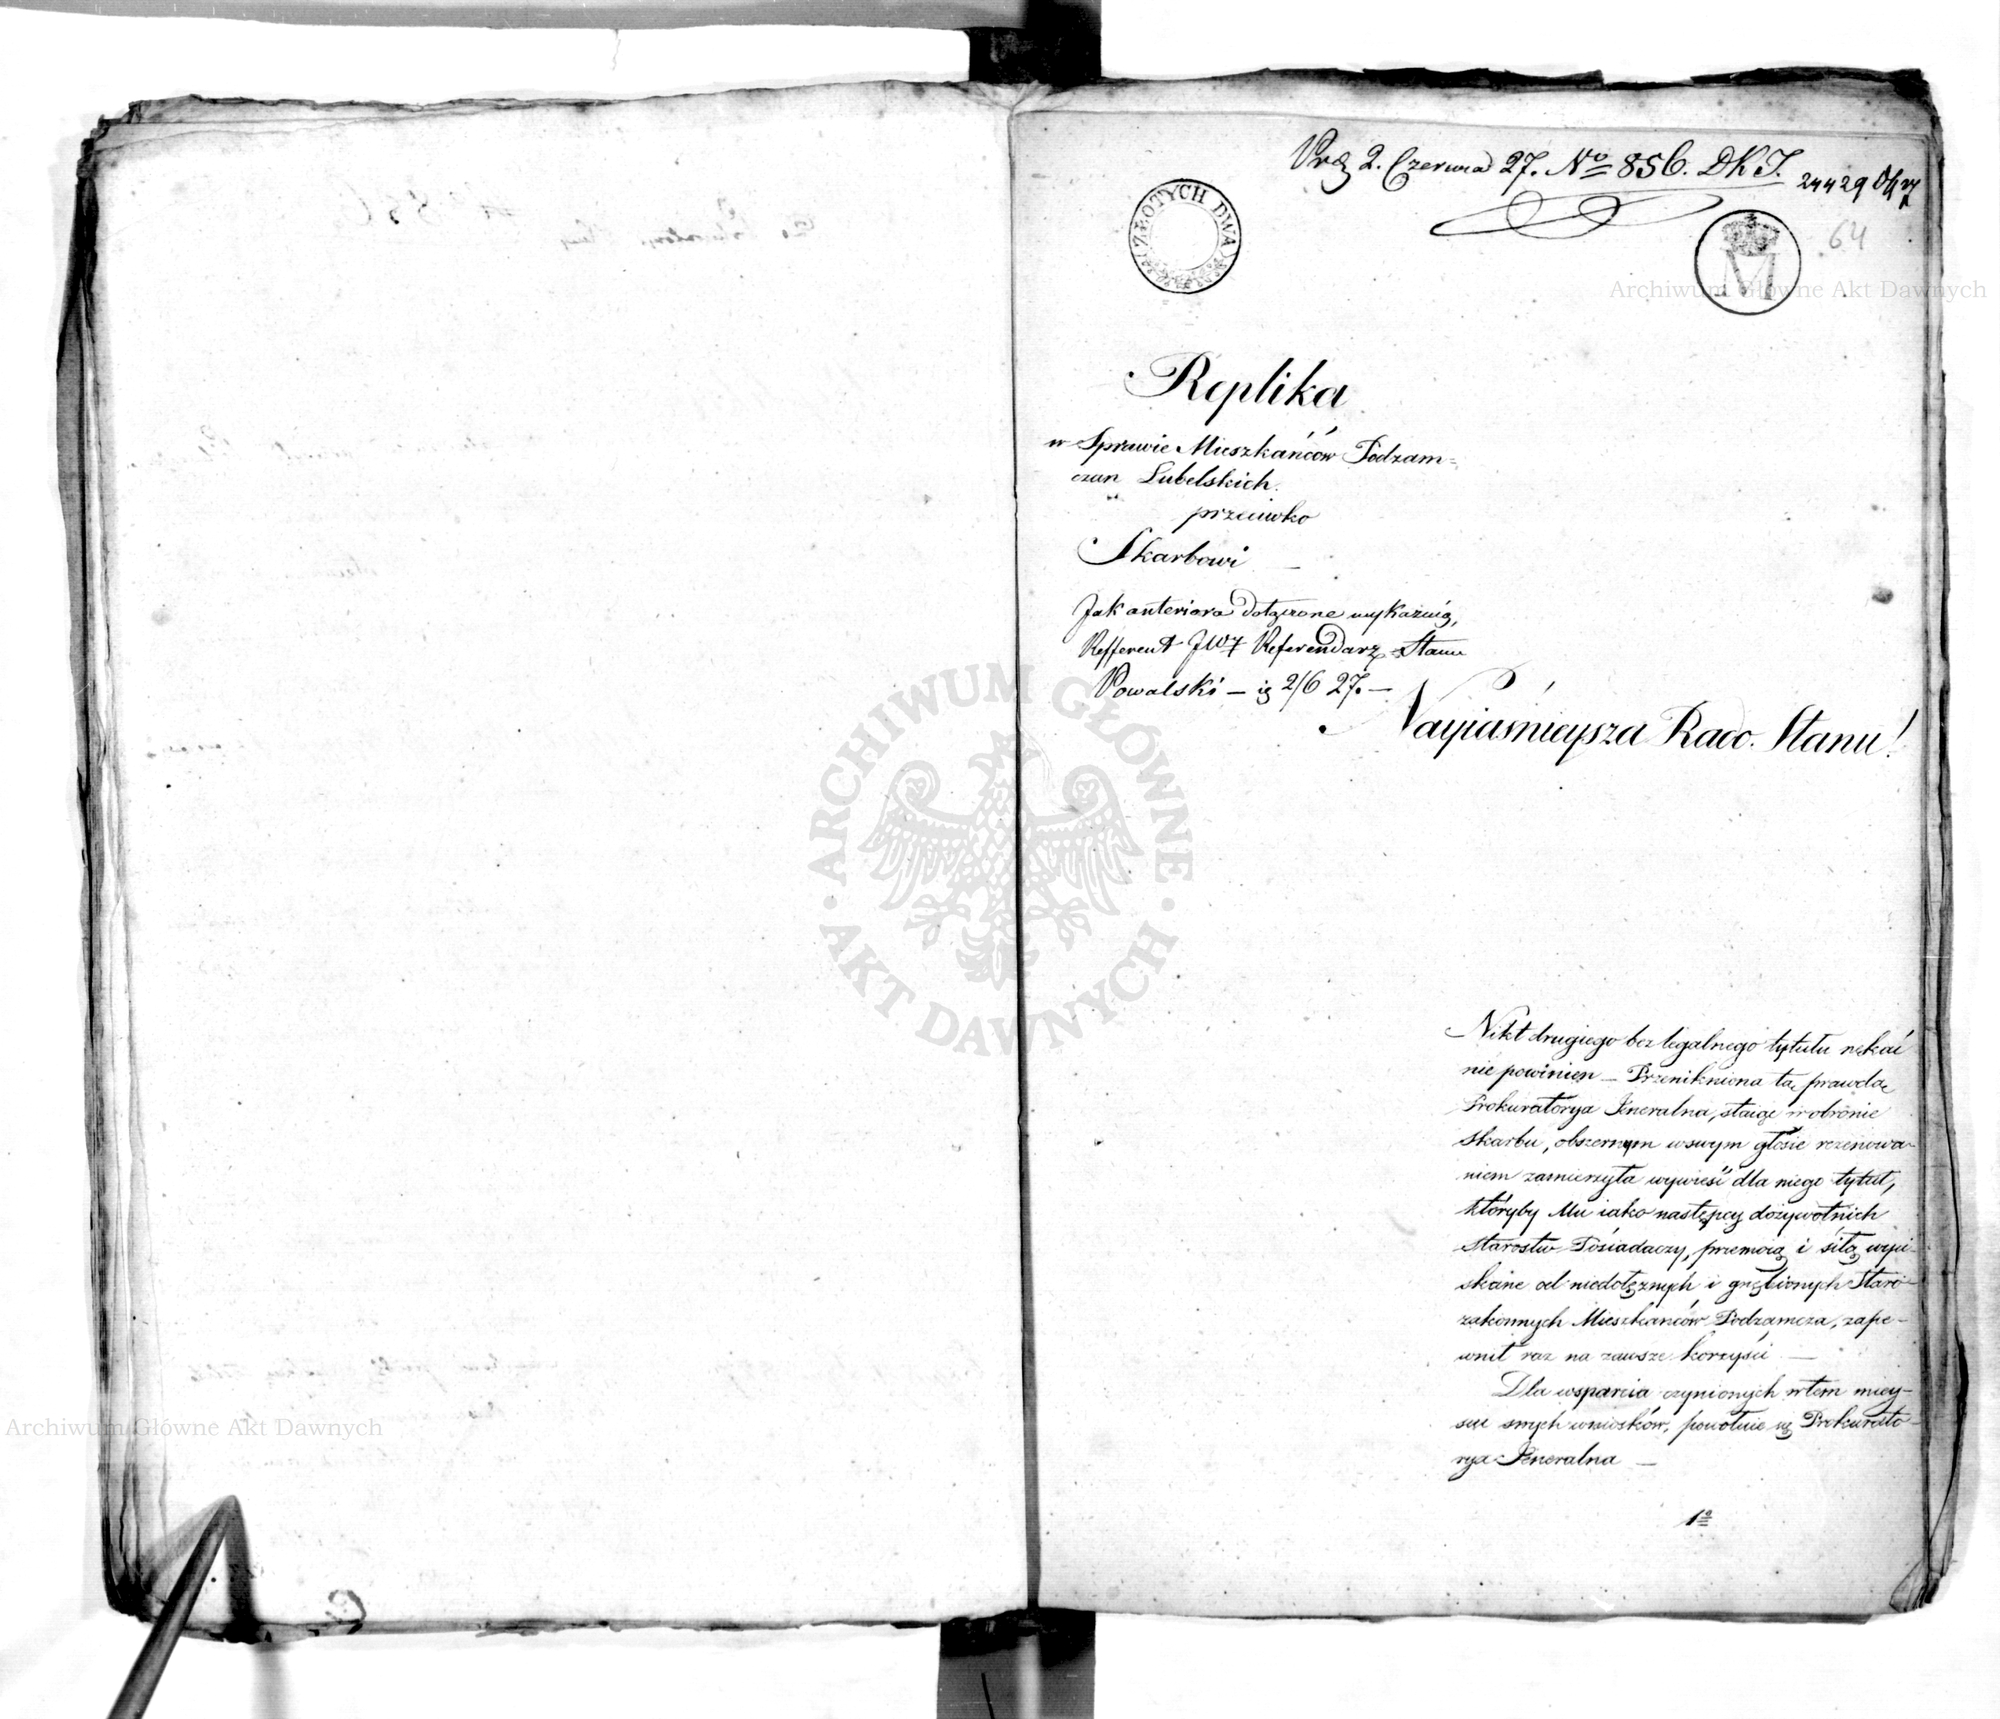 Prz 2. Czerwca 27. No 856. DKJ.
24429 
64
ZŁOTYCH DWA
Replika
w Sprawie Mieszkańców Podzam=
czan Lubelskich.
przeciwko
Skarbowi —
Jak anteriora dołączone wykazuią,
Refferent JW Referendarz Stanu
Powalski — 2/6 27. —
Nayiaśnieysza Rado. Stanu!
Nikt drugiego bez legalnego tytułu nękać
nie powinien — Przenikniona tą prawdą
Prokuratorya Jeneralna, staiąc w obronie
Skarbu, obszernym w swym głosie rezonowa-
niem zamierzyła wywieść dla niego tytuł,
któryby Mu iako następcy dożywotnich
Starostw Posiadaczy, przemocą i siłą wyci-
skane od niedołężnych i gnębionych Staro-
zakonnych Mieszkańców Podzamcza, zape-
wnił raz na zawsze korzyści —
Dla wsparcia czynionych w tem miey-
scu swych wniosków, powołuie się Prokurato-
rya Jeneralna —
1o
ARCHIWUM GŁÓWNE
AKT DAWNYCH
Archiwum Główne Akt Dawnych
Archiwum Główne Akt Dawnych